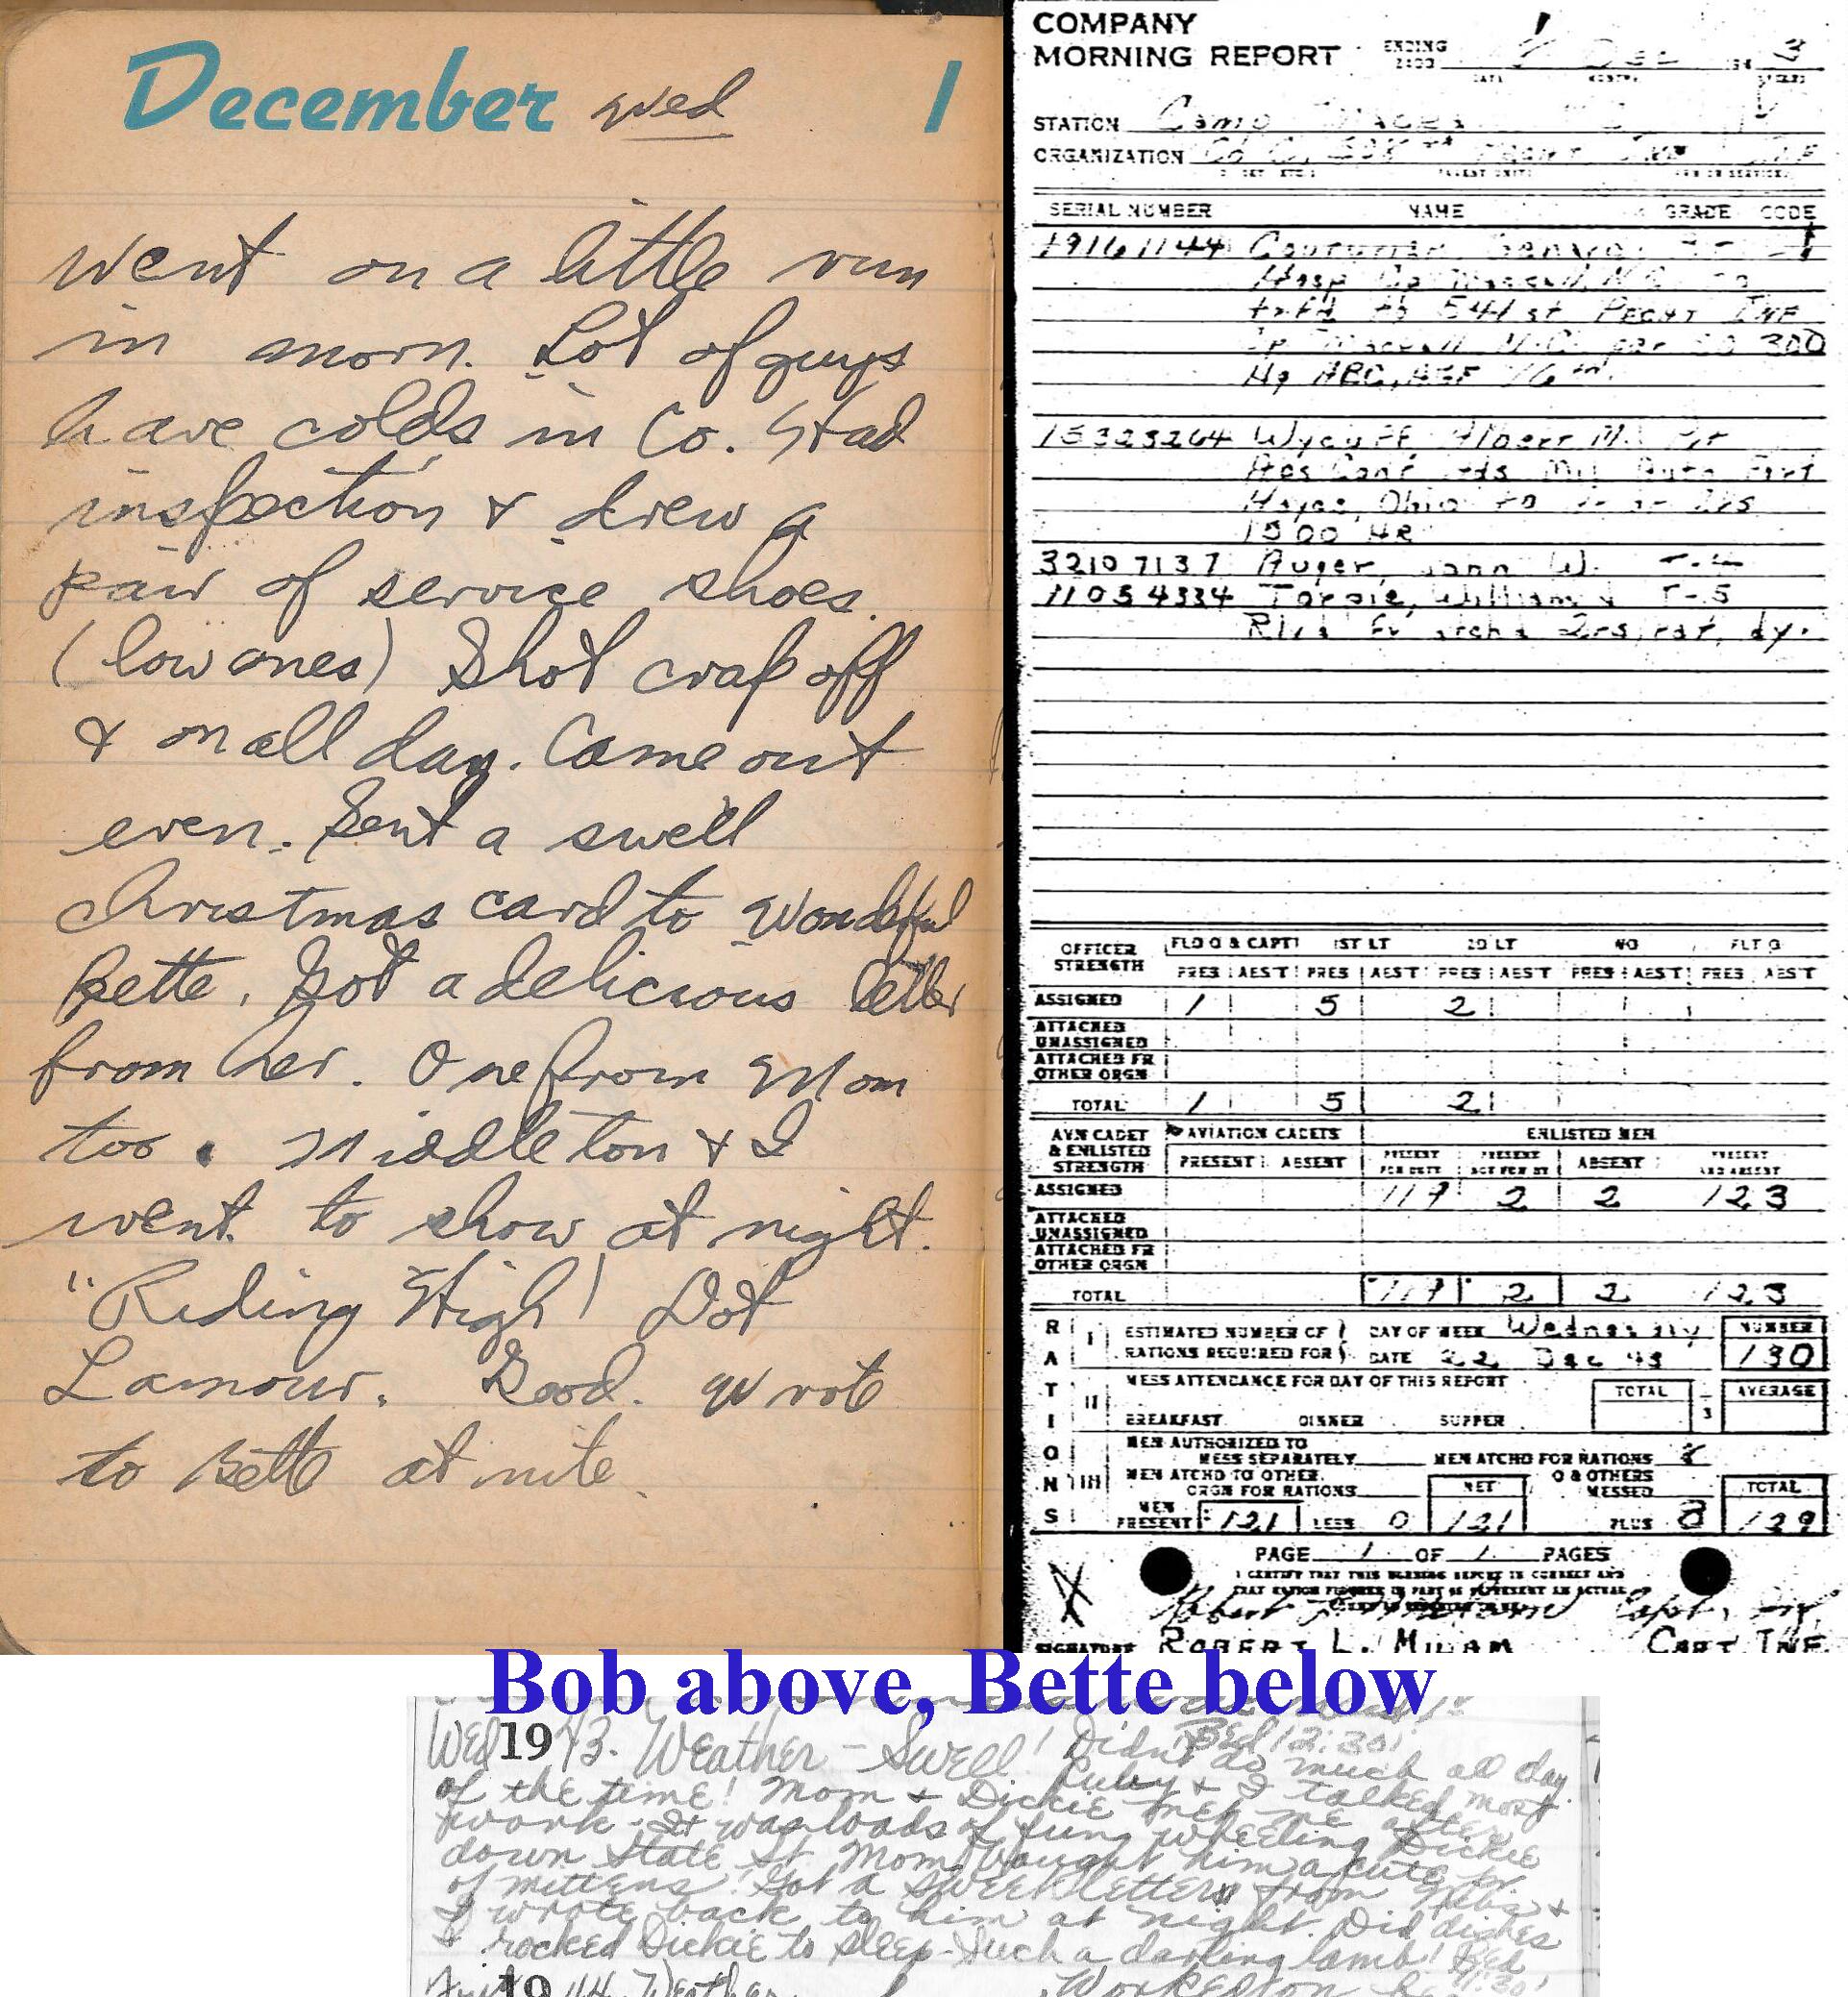 December Wed 1
Went on a little run
in morn. Lot of guys
have colds in Co. Had
inspection & drew a
pair of service shoes.
(low ones) Shot crap off
& on all day. Came out
even. Sent a swell
Christmas card to Wondeful
Bette. Got a delicious letter
from her. One from Mom
too. Middleton & I
went to show at night.
"Riding High" Dot
Lamour. Good. Wrote
to Bette at nite.
COMPANY
MORNING REPORT ENDING 1 Dec 194 3
STATION Camp
ORGANIZATION Co C,
SERIAL NUMBER NAME GRADE CODE
19161144
Hosp
trfd to 541st Pecht INF
Mackall N.C. per SO 300
Hq ABC, AGF
15323264 Wycuff Albert M. Pvt
Hayes, Ohio to
1500 HR
32107137 Auger, W. T-4
11054334 William T-5
dy.
OFFICER STRENGTH FLD O & CAPT 1ST LT 2D LT WO FLT O
PRES ABS'T PRES ABS'T PRES ABS'T PRES ABS'T PRES ABS'T
ASSIGNED 1 5 2
ATTACHED UNASSIGNED
ATTACHED FR OTHER ORGN
TOTAL 1 5 2
AVN CADET & ENLISTED STRENGTH AVIATION CADETS ENLISTED MEN
PRESENT ABSENT PRESENT FOR DUTY PRESENT NOT FOR DY ABSENT PRESENT AND ABSENT
ASSIGNED 119 2 2 123
ATTACHED UNASSIGNED
ATTACHED FR OTHER ORGN
TOTAL 119 2 2 123
RATIONS
I ESTIMATED NUMBER OF RATIONS REQUIRED FOR DAY OF WEEK Wednesday DATE Dec 43 NUMBER 130
II MESS ATTENDANCE FOR DAY OF THIS REPORT TOTAL 3 AVERAGE
BREAKFAST DINNER SUPPER
III MEN AUTHORIZED TO MESS SEPARATELY MEN ATCHD FOR RATIONS
MEN ATCHD TO OTHER ORGN FOR RATIONS NET O & OTHERS MESSED TOTAL
MEN PRESENT 121 LESS 0 121 PLUS 8 129
PAGE 1 OF 1 PAGES
I CERTIFY THAT THIS MORNING REPORT IS CORRECT AND
Robert L. Capt. Inf.
SIGNATURE ROBERT L. MILAM CAPT. INF
Bob above, Bette below
Bed 12:30!
Wed 1943. Weather - Swell! Didn't do much all day
Ruby & I talked most
of the time! Mom & Dickie met me after
work - It was loads of fun wheeling Dickie
down State St. Mom bought him a cute pr.
of mittens! Got a sweet letter from &
I wrote back to him at night. Did dishes
& rocked Dickie to sleep - Such a darling lamb! Bed
11:30!
19 44. Weather
Worked